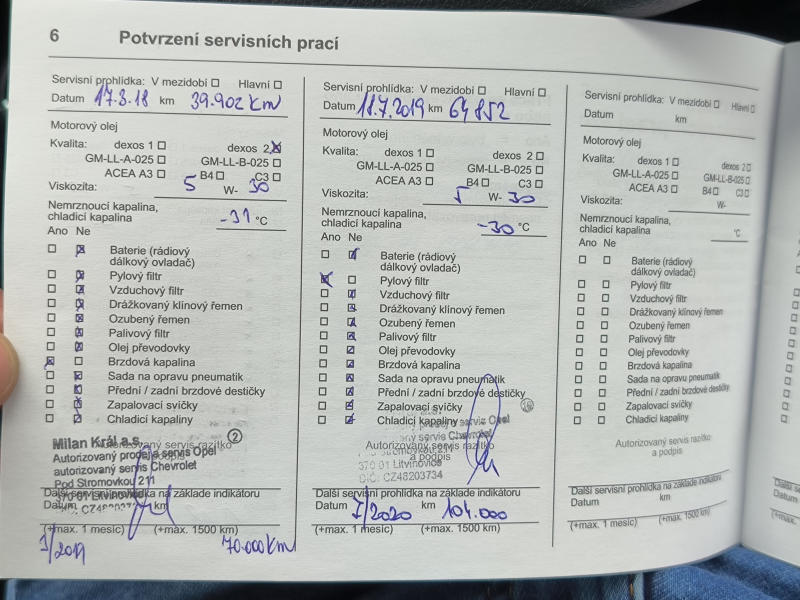 6 Potvrzení servisních prací
Servisní prohlídka: V mezidobí Hlavní
Datum 17.8.18 km 39.902 km
Motorový olej
Kvalita: dexos 1 dexos 2
GM-LL-A-025 GM-LL-B-025
ACEA A3 B4 C3
Viskozita: 5 W- 30
Nemrznoucí kapalina,
chladicí kapalina -31 °C
Ano Ne
Baterie (rádiový
dálkový ovladač)
Pylový filtr
Vzduchový filtr
Drážkovaný klínový řemen
Ozubený řemen
Palivový filtr
Olej převodovky
Brzdová kapalina
Sada na opravu pneumatik
Přední / zadní brzdové destičky
Zapalovací svíčky
Chladicí kapaliny
Milan Král a.s. 2
Autorizovaný servis razítko
Autorizovaný prodej a servis Opel
autorizovaný servis Chevrolet
Pod Stromovkou 211
370 01 Litvínovice
Další servisní prohlídka na základě indikátoru
Datum km
(+max. 1 měsíc) (+max. 1500 km)
7/2019 70.000 km
Servisní prohlídka: V mezidobí Hlavní
Datum 18.7.2019 km 64 852
Motorový olej
Kvalita: dexos 1 dexos 2
GM-LL-A-025 GM-LL-B-025
ACEA A3 B4 C3
Viskozita: 5 W- 30
Nemrznoucí kapalina,
chladicí kapalina -30 °C
Ano Ne
Baterie (rádiový
dálkový ovladač)
Pylový filtr
Vzduchový filtr
Drážkovaný klínový řemen
Ozubený řemen
Palivový filtr
Olej převodovky
Brzdová kapalina
Sada na opravu pneumatik
Přední / zadní brzdové destičky
Zapalovací svíčky
Chladicí kapaliny
servis Opel
servis Chevrolet
Autorizovaný servis razítko
a podpis
370 01 Litvínovice
DIČ: CZ48203734
Další servisní prohlídka na základě indikátoru
Datum 7/2020 km 104.000
(+max. 1 měsíc) (+max. 1500 km)
Servisní prohlídka: V mezidobí Hlavní
Datum km
Motorový olej
Kvalita: dexos 1 dexos 2
GM-LL-A-025 GM-LL-B-025
ACEA A3 B4 C3
Viskozita: W-
Nemrznoucí kapalina,
chladicí kapalina °C
Ano Ne
Baterie (rádiový
dálkový ovladač)
Pylový filtr
Vzduchový filtr
Drážkovaný klínový řemen
Ozubený řemen
Palivový filtr
Olej převodovky
Brzdová kapalina
Sada na opravu pneumatik
Přední / zadní brzdové destičky
Zapalovací svíčky
Chladicí kapaliny
Autorizovaný servis razítko
a podpis
Další servisní prohlídka na základě indikátoru
Datum km
(+max. 1 měsíc) (+max. 1500 km)